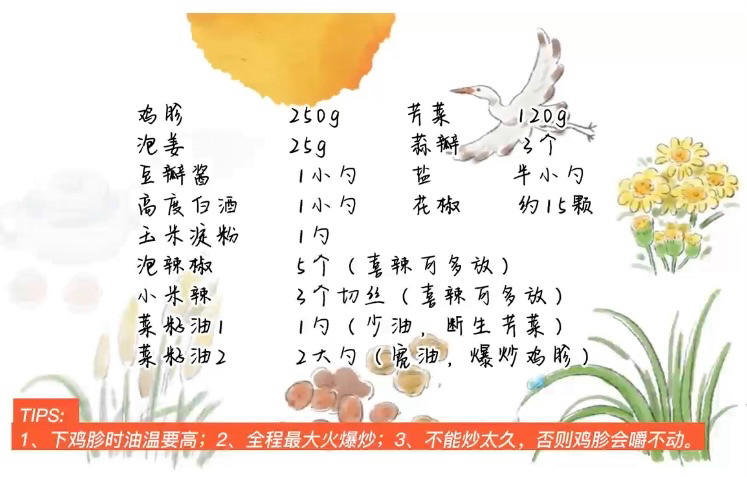 鸡胗 250g 芹菜 120g
泡姜 25g 蒜瓣 3个
豆瓣酱 1小勺 盐 半小勺
高度白酒 1小勺 花椒 约15颗
玉米淀粉 1勺
泡辣椒 5个（喜辣可多放）
小米辣 3个切丝（喜辣可多放）
菜籽油1 1勺（少油，断生芹菜）
菜籽油2 2大勺（宽油，爆炒鸡胗）
TIPS:
1、下鸡胗时油温要高；2、全程最大火爆炒；3、不能炒太久，否则鸡胗会嚼不动。